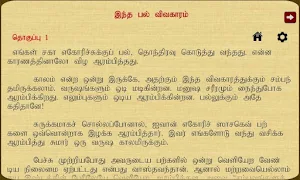 இந்த பல் விவகாரம்
தொகுப்பு 1
எங்கள் சகா எகோரிச்சுக்குப் பல், தொந்திரவு கொடுத்து வந்தது. என்ன
காரணத்தினாலோ விழ ஆரம்பித்தது.
காலம் என்ற ஒன்று இருக்கே, அதற்கும் இந்த விவகாரத்துக்கும் சம்பந்
தமிருக்கலாம். வருஷங்களும் ஓடி மடிகின்றன. மனுஷ சரீரமும் நைந்துபோக
ஆரம்பிக்கிறது. எலும்புகளும் ஒடிய ஆரம்பிக்கின்றன. பல்லுக்கும் அதே
கதிதானே!
சுருக்கமாகச் சொல்லப்போனால், ஐவான் எகோரிச் பற்
களை ஒவ்வொன்றாக இழக்க ஆரம்பித்தார். இவர் எங்களோடு வந்து வசிக்க
ஆரம்பித்து சுமார் ஒரு வருஷ காலமிருக்கும்.
பேச்சு முற்றியபோது அவருடைய பற்களில் ஒன்று வெளியேற வேண்
டிய நிலைமை ஏற்பட்டது என்பது வாஸ்தவந்தான். ஆனால் மற்றவையெல்லாம்